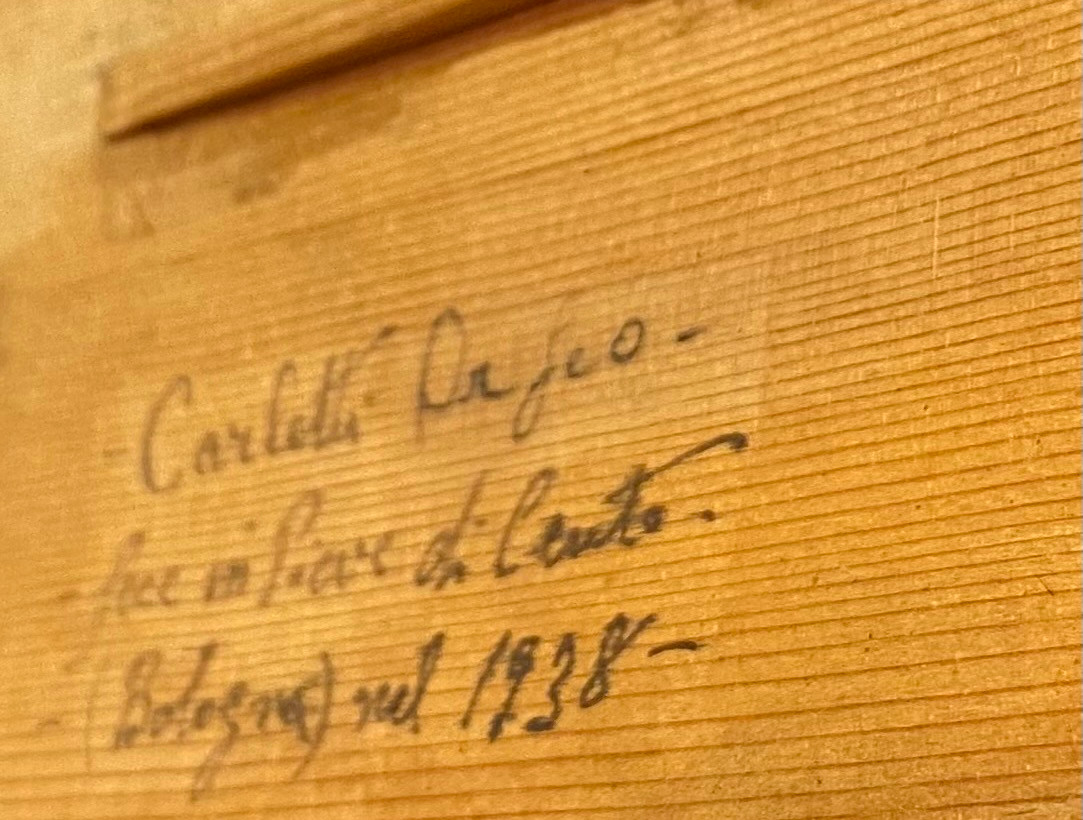 - Carletti Orfeo -
- fece in Pieve di Cento -
- (Bologna) nel 1938 -